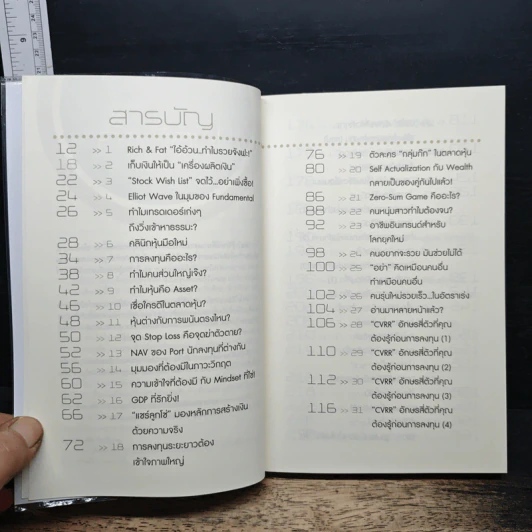 สารบัญ
12 >> 1 Rich & Fat "ไอ้อ้วน..ทำไมรวยจังฟะ!"
18 >> 2 เก็บเงินให้เป็น "เครื่องผลิตเงิน"
22 >> 3 "Stock Wish List" จดไว้...อย่าเพิ่งซื้อ!
24 >> 4 Elliot Wave ในมุมของ Fundamental
26 >> 5 ทำไมเทรดเดอร์เก่งๆ
ถึงวิ่งเข้าหาธรรมะ?
28 >> 6 คลินิกหุ้นมือใหม่
34 >> 7 การลงทุนคืออะไร?
38 >> 8 ทำไมคนส่วนใหญ่เจ๊ง?
42 >> 9 ทำไมหุ้นคือ Asset?
46 >> 10 เชื่อใครดีในตลาดหุ้น?
48 >> 11 หุ้นต่างกับการพนันตรงไหน?
50 >> 12 จุด Stop Loss คือจุดฆ่าตัวตาย?
52 >> 13 NAV ของ Port นักลงทุนที่ต่างกัน
56 >> 14 มุมมองที่ต้องมีในภาวะวิกฤต
60 >> 15 ความเข้าใจที่ต้องมี กับ Mindset ที่ใช่!
62 >> 16 GDP ที่รักยิ่ง!
66 >> 17 "แชร์ลูกโซ่" มองหลักการสร้างเงิน
ด้วยความจริง
72 >> 18 การลงทุนระยะยาวต้อง
เข้าใจภาพใหญ่
76 >> 19 ตัวละคร "กลุ่มกั๊ก" ในตลาดหุ้น
80 >> 20 Self Actualization กับ Wealth
กลายเป็นของคู่กันไปแล้ว!
86 >> 21 Zero-Sum Game คืออะไร?
88 >> 22 คนหนุ่มสาวทำไมต้องจน?
92 >> 23 อาชีพอินเทรนด์สำหรับ
โลกยุคใหม่
98 >> 24 คนอยากจะรวย มันช่วยไม่ได้
100 >> 25 "อย่า" คิดเหมือนคนอื่น
ทำเหมือนคนอื่น
102 >> 26 คนรุ่นใหม่รวยเร็ว...ในอัตราเร่ง
104 >> 27 อ่านมาหลายหน้าแล้ว?
106 >> 28 "CVRR" อักษรสี่ตัวที่คุณ
ต้องรู้ก่อนการลงทุน (1)
110 >> 29 "CVRR" อักษรสี่ตัวที่คุณ
ต้องรู้ก่อนการลงทุน (2)
112 >> 30 "CVRR" อักษรสี่ตัวที่คุณ
ต้องรู้ก่อนการลงทุน (3)
116 >> 31 "CVRR" อักษรสี่ตัวที่คุณ
ต้องรู้ก่อนการลงทุน (4)